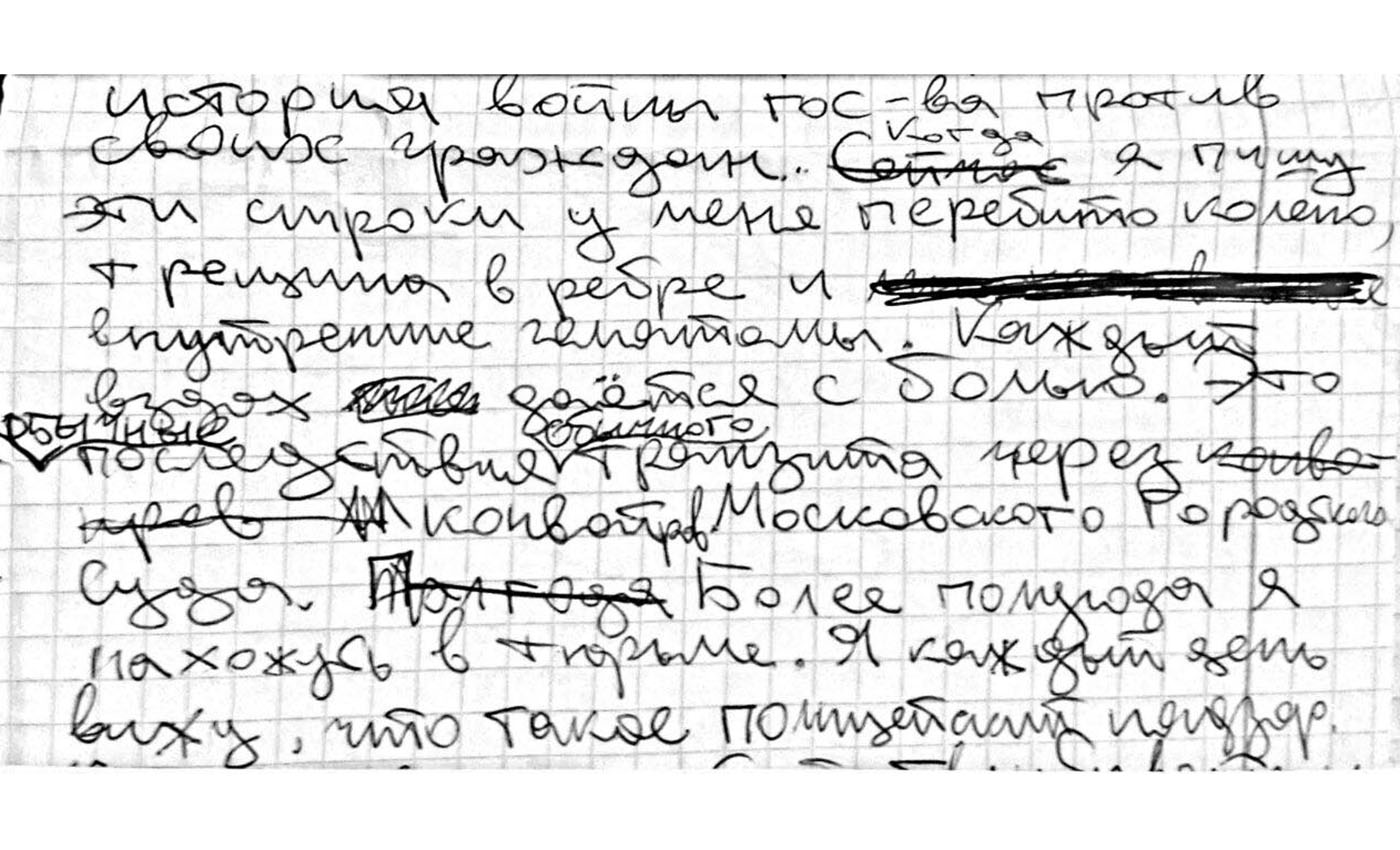 история войны гос-ва против
своих граждан. Когда я пишу
эти строки у меня перебито колено,
трещина в ребре и
внутренние гематомы. Каждый
вздох даётся с болью. Это
обычные последствия обычного транзита через
конвойров Московского Городского
Суда. Более полугода я
нахожусь в тюрьме. Я каждый день
вижу, что такое полицейский надзор.